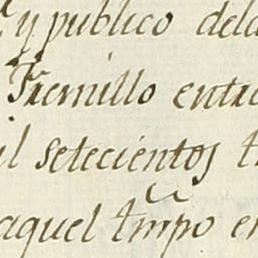 y publico del
Tremillo entre
il setecientos t
aquel tmpo en